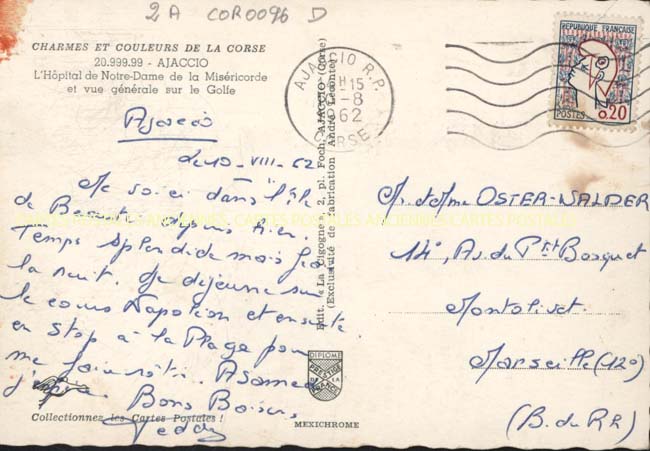 2A COR0096 D
CHARMES ET COULEURS DE LA CORSE
20.999.99 - AJACCIO
L'Hôpital de Notre-Dame de la Miséricorde
et vue générale sur le Golfe
Ajaccio
Le 10-VIII-62
Me voici dans l'île
de Beauté depuis hier.
Temps splendide mais
la nuit. Je déjeune sur
le cours Napoléon et ensuite
en stop à la Plage pour
me A Samedi
j'espère. Bons Baisers,
Teddy
Collectionnez les Cartes Postales !
Edit. «La Cigogne», 2, pl. Foch, AJACCIO (Corse)
(Exclusivité de fabrication André Leconte)
DIPLOME
PRESTIGE
FRANCE
MEXICHROME
AJACCIO R.P.
H 15
-8
1962
CORSE
REPUBLIQUE FRANCAISE
0,20
POSTES
M. et Mme OSTER-WALDER
14, Av. du Pt Bosquet
Montolivet
Marseille (12°)
(B. du Rh)
CARTES POSTALES ANCIENNES CARTES POSTALES ANCIENNES CARTES POSTALES